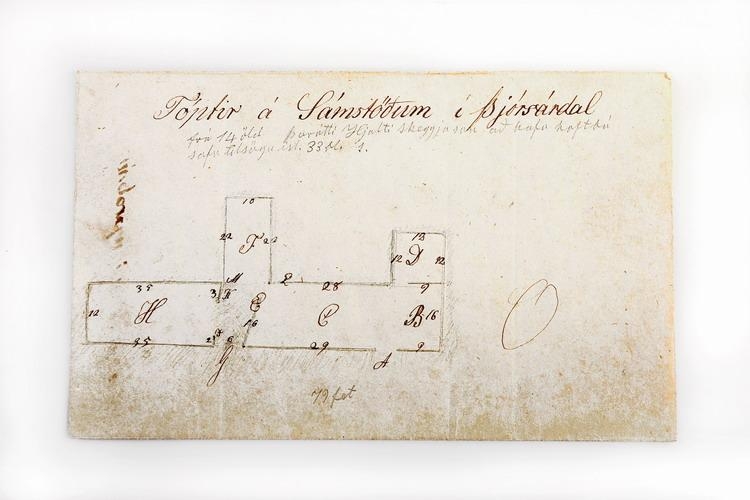 Tóptir á Sámstöðum í Þjórsárdal
frá 14 öld Þar átti Hjalti Skeggjason að hafa haft bú
safn til sögu Ísl. 33 bls 1.
10
22 F 22
13
12 D 12
M L
35 3 28 9
12 H E C B 16
16
35 2 6 29 9
G A
79 fet